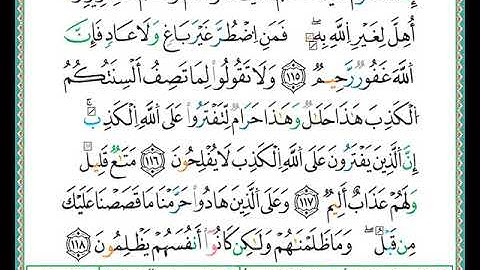 أُهِلَّ لِغَيْرِ ٱللَّهِ بِهِۦۖ فَمَنِ ٱضْطُرَّ غَيْرَ بَاغٍ وَلَا عَادٍ فَإِنَّ
ٱللَّهَ غَفُورٌ رَّحِيمٌ ١١٥ وَلَا تَقُولُواْ لِمَا تَصِفُ أَلْسِنَتُكُمُ
ٱلْكَذِبَ هَٰذَا حَلَٰلٌ وَهَٰذَا حَرَامٌ لِّتَفْتَرُواْ عَلَى ٱللَّهِ ٱلْكَذِبَۚ
إِنَّ ٱلَّذِينَ يَفْتَرُونَ عَلَى ٱللَّهِ ٱلْكَذِبَ لَا يُفْلِحُونَ ١١٦ مَتَٰعٌ قَلِيلٌ
وَلَهُمْ عَذَابٌ أَلِيمٌ ١١٧ وَعَلَى ٱلَّذِينَ هَادُواْ حَرَّمْنَا مَا قَصَصْنَا عَلَيْكَ
مِن قَبْلُۖ وَمَا ظَلَمْنَٰهُمْ وَلَٰكِن كَانُوٓاْ أَنفُسَهُمْ يَظْلِمُونَ ١١٨